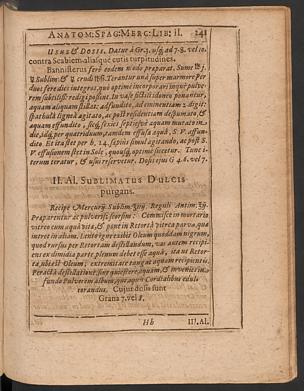 ANATOM: SPAG: MERC: LIB: II. 241
Usus & Dosis. Datur à Gr. 3. usq; ad 7. 8. vel 10.
contra Scabiem aliasque cutis turpitudines.
Bannisterus ferè eodem modo preparat. Sume
Sublim: & crudi Terantur una super marmore Per
duos fere dies integros, quò optimè incorporari inque pulve-
rem subtiliss: redigi possint. In vase fictili idoneo ponantur,
aquam aliquam stillat: adfundito, ad eminentiam 2. digit:
spathulâ ligneâ agitato, ac post residentiam despumato, &
aquam effundito, sicq; sexies septiesve aquam mutato in-
die, idq; per quatriduum, tandem effusâ aquâ, S. V. affun-
dito. Et ita stet per h. 24. sæpius simul agitando, ac post S.
V. effusionem stet in Sole, quousq; optimè siccetur. Tunc i-
terum teratur, & usui reservetur. Dosis ejus G 4. 6. vel 7.
II. Al. SUBLIMATUS DULCIS
purgans.
Recipe Mercurij Sublim: Reguli Antim.
Præparentur ac pulverisentur seorsim: Commisce in mortario
vitreo cum aquâ vitæ, & pone in Retortâ vitrea parvo, qua
intret in alium. Leviter prexibit Oleum quoddam nigrum,
quod rursus per Retortam destillandum, vas autem recipi-
ens ex dimidia parte plenum debet esse aquâ, ita ut Retor-
ta, ubi est Oleum, extremitate tangat aquam recipientis.
Peractâ destillatione, sine quiescere, aquam, & invenies in-
fundo Pulverem album, quo aquis Cordialibus edul-
torandus. Cujus dosis sunt
Grana 7. vel 8.
Hh III. Al.